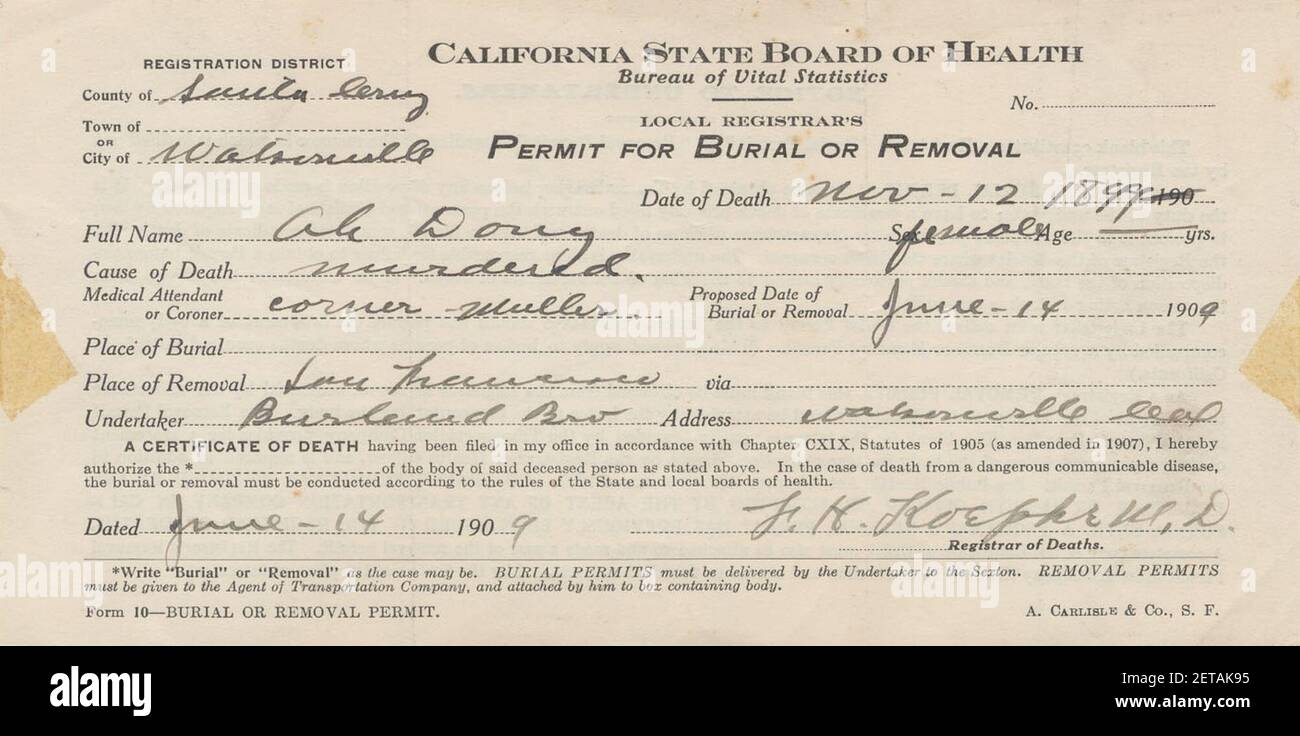 CALIFORNIA STATE BOARD OF HEALTH
Bureau of Vital Statistics
REGISTRATION DISTRICT
County of Santa Cruz
No.
Town of
OR
City of Watsonville
LOCAL REGISTRAR'S
PERMIT FOR BURIAL OR REMOVAL
Date of Death Nov - 12 1899 190
Full Name Ah Dong Sex female Age yrs.
Cause of Death murdered.
Medical Attendant or Coroner corner Muller. Proposed Date of Burial or Removal June - 14 1909
Place of Burial
Place of Removal San Francisco via
Undertaker Bro Address Watsonville Cal
A CERTIFICATE OF DEATH having been filed in my office in accordance with Chapter CXIX, Statutes of 1905 (as amended in 1907), I hereby
authorize the * of the body of said deceased person as stated above. In the case of death from a dangerous communicable disease,
the burial or removal must be conducted according to the rules of the State and local boards of health.
Dated June - 14 1909 Koepke M.D.
Registrar of Deaths.
*Write "Burial" or "Removal" as the case may be. BURIAL PERMITS must be delivered by the Undertaker to the Sexton. REMOVAL PERMITS
must be given to the Agent of Transportation Company, and attached by him to box containing body.
Form 10—BURIAL OR REMOVAL PERMIT.
A. CARLISLE & CO., S. F.
alamy
Image ID: 2ETAK95
www.alamy.com